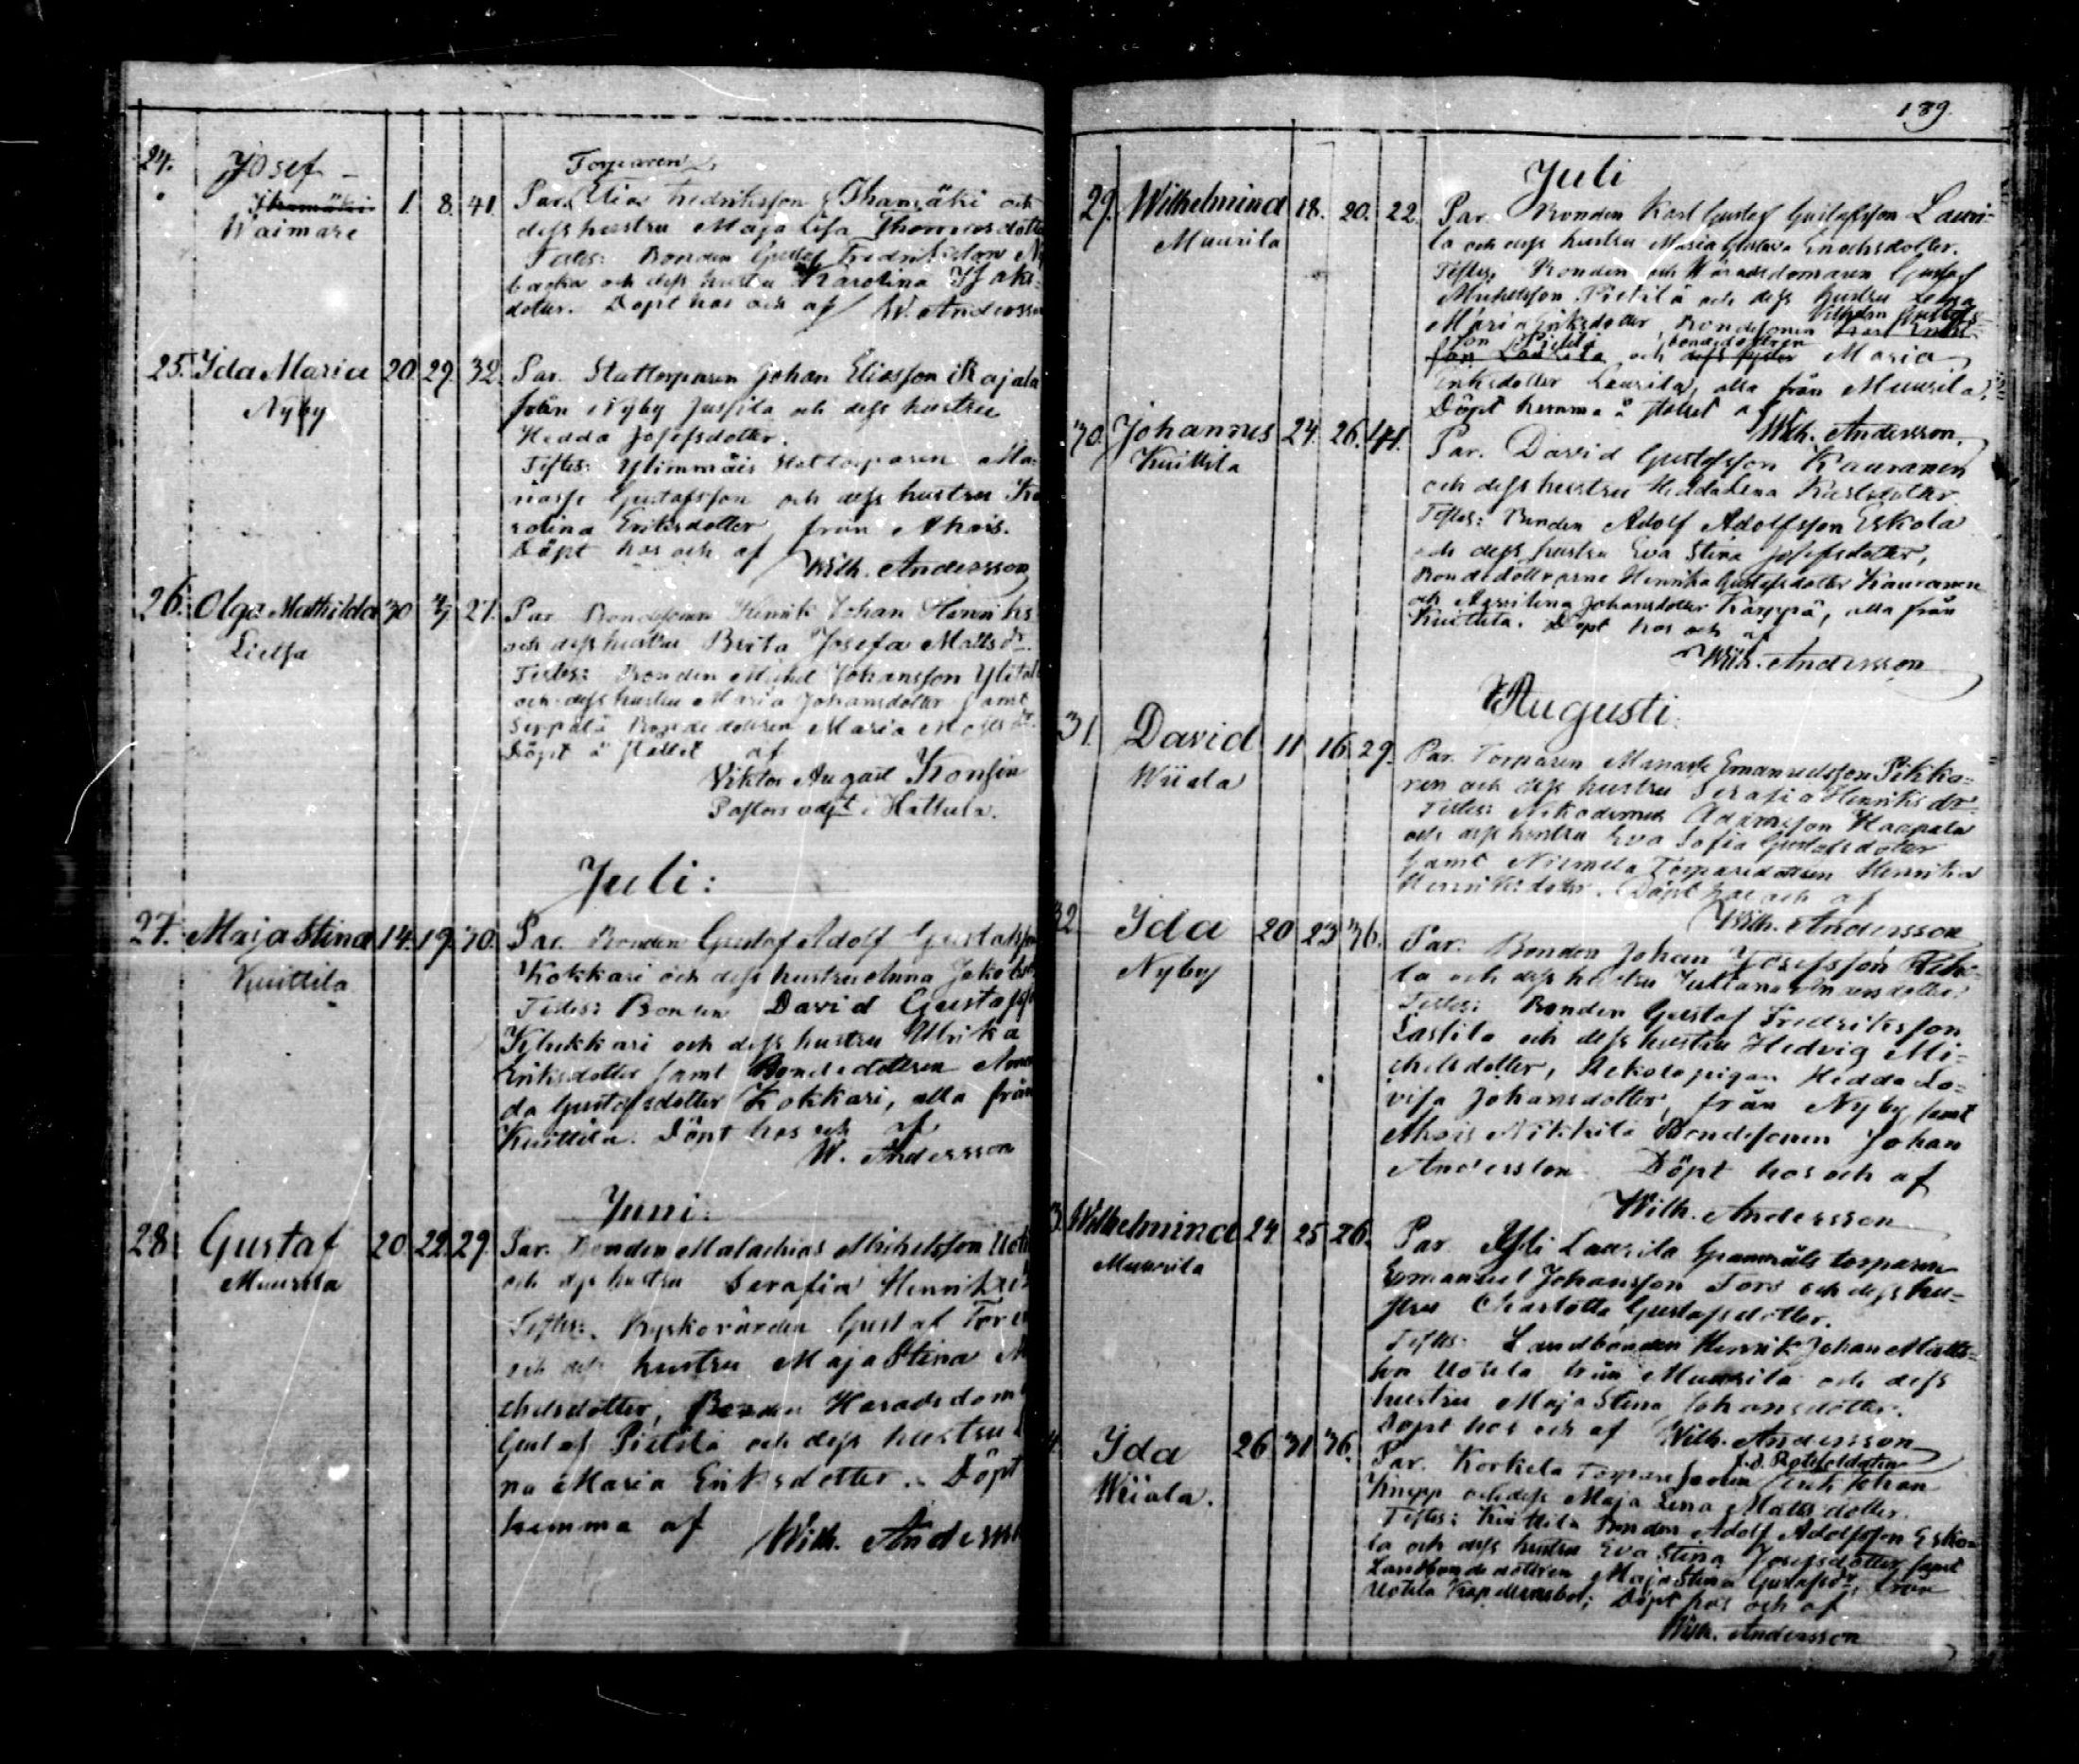 24. Josef Torparen
Ihamäki 1. 8. 41. Par. Elias Fredriksson Ihamäki och
Waimare dess hustru Maja Lisa Thomasdotter
Testes: Bonden Gustaf Fredriksson
backa och dess hustru Karolina Isaks-
dotter. Döpt hos och af W. Andersson
25. Ida Maria 20. 29. 32. Par. Stattorparen Johan Eliasson Rajala
Nyby från Nyby Jussila och dess hustru
Hedda Josefsdotter.
Testes: Ylimmäis Stattorparen Ma-
nasse Gustafsson och dess hustru Ka
rolina Eriksdotter från Ahois.
Döpt hos och af
Wilh. Andersson
26. Olga Mathilda 30 27. Par Bondesonen Henrik Johan Henriks
Lielsa och dess hustru Brita Josefa Matts dr.
Testes: Bonden Michel Johansson Ylitalo
och dess hustru Maria Johansdotter samt
Seppälä Bondedottren Maria Mattsdr.
Döpt å stället af
Viktor August Konsin
Pastors adjt i Hattula.
Juli:
27. Maja Stina 14. 19. 30. Par. Bonden Gustaf Adolf Gustafsson
Kuittila Kokkari och dess hustru Anna Jakobs
Testes: Bonden David Gustafsson
Kylukkari och dess hustru Ulrika
Eriksdotter samt Bondedottren Aman
da Gustafsdotter Kokkari, alla från
Kuittila. Döpt hos och af
W. Andersson
Juni:
28 Gustaf 20. 22. 29. Par. Bonden Malachias Michelsson Uoti
Muurila och dess hustru Serafia Henriks
Testes: Kyrkovärden Gustaf
och dess hustru Maja Stina Mi
chelsdotter, Bonden Häradsdom
Gustaf Pietilä och dess hustru L
na Maria Eriksdotter. Döpt
hemma af Wilh. Anderss
189.
Juli
29. Wilhelmina 18. 20. 22. Par. Bonden Karl Gustaf Gustafsson Lauri-
Muurila la och dess hustru Maria Gustava Enochsdotter.
Testes: Bonden och Häradsdomaren Gustaf
Michelsson Pietilä och dess hustru Lena
Maria Eriksdotter, Bondesonen Vilhelm Gustafs-
son Pietilä och bondedottren Maria
Eriksdotter Laurila, alla från Muurila.
Döpt hemma å stället af
Wilh. Andersson.
30. Johannes 24. 26. 41. Par. David Gustafsson Kauranen
Kuittila och dess hustru Hedda Lena Karlsdotter
Testes: Bonden Adolf Adolfsson Eskola
och dess hustru Eva Stina Josefsdotter,
Bondedöttrarne Henrika Gustafsdotter Kauranen
och Johansdotter Karppä, alla från
Kuittila. Döpt hos och af
Wilh. Andersson
Augusti.
31. David 11 16. 29. Par. Torparen Manasse Emanuelsson Pikka-
Wiiala ren och dess hustru Serafia Henriksdr
Testes: Nikodemus Adamsson Haapala
och dess hustru Eva Sofia Gustafsdotter
samt Niemela Torparedottren Henrika
Henriksdotter. Döpt hos och af
Wilh. Andersson
32. Ida 20 23 36. Par. Bonden Johan Josefsson
Nyby la och dess hustru Juliana Andersdotter.
Testes: Bonden Gustaf Fredriksson
Lassila och dess hustru Hedvig Mi-
chelsdotter, Rekolapigan Hedda Lo-
visa Johansdotter, från Nyby samt
Ahois Nikkilä Bondesonen Johan
Andersson. Döpt hos och af
Wilh. Andersson
3. Wilhelmina 24. 25 26. Par. Laurila Grannäls torparen
Muurila Emanuel Johansson Tors och dess hu-
stru Charlotta Gustafsdotter.
Testes: Landbonden Henrik Johan Matts-
son Uotila från Muurila och dess
hustru Maja Stina Johansdotter.
Döpt hos och af Wilh. Andersson
4. Ida 26 31 36. Par. Korkela Torparesonen f.d. Reservsoldaten Johan
Wiiala. Knepp och dess Maja Lena Mattsdotter.
Testes: Kuittila Bonden Adolf Adolfsson Esko-
la och dess hustru Eva Stina Josefsdotter samt
Landbondedottren Maja Stina Gustafsdr. från
Uotila Kapellansbol; Döpt hos och af
Wilh. Andersson